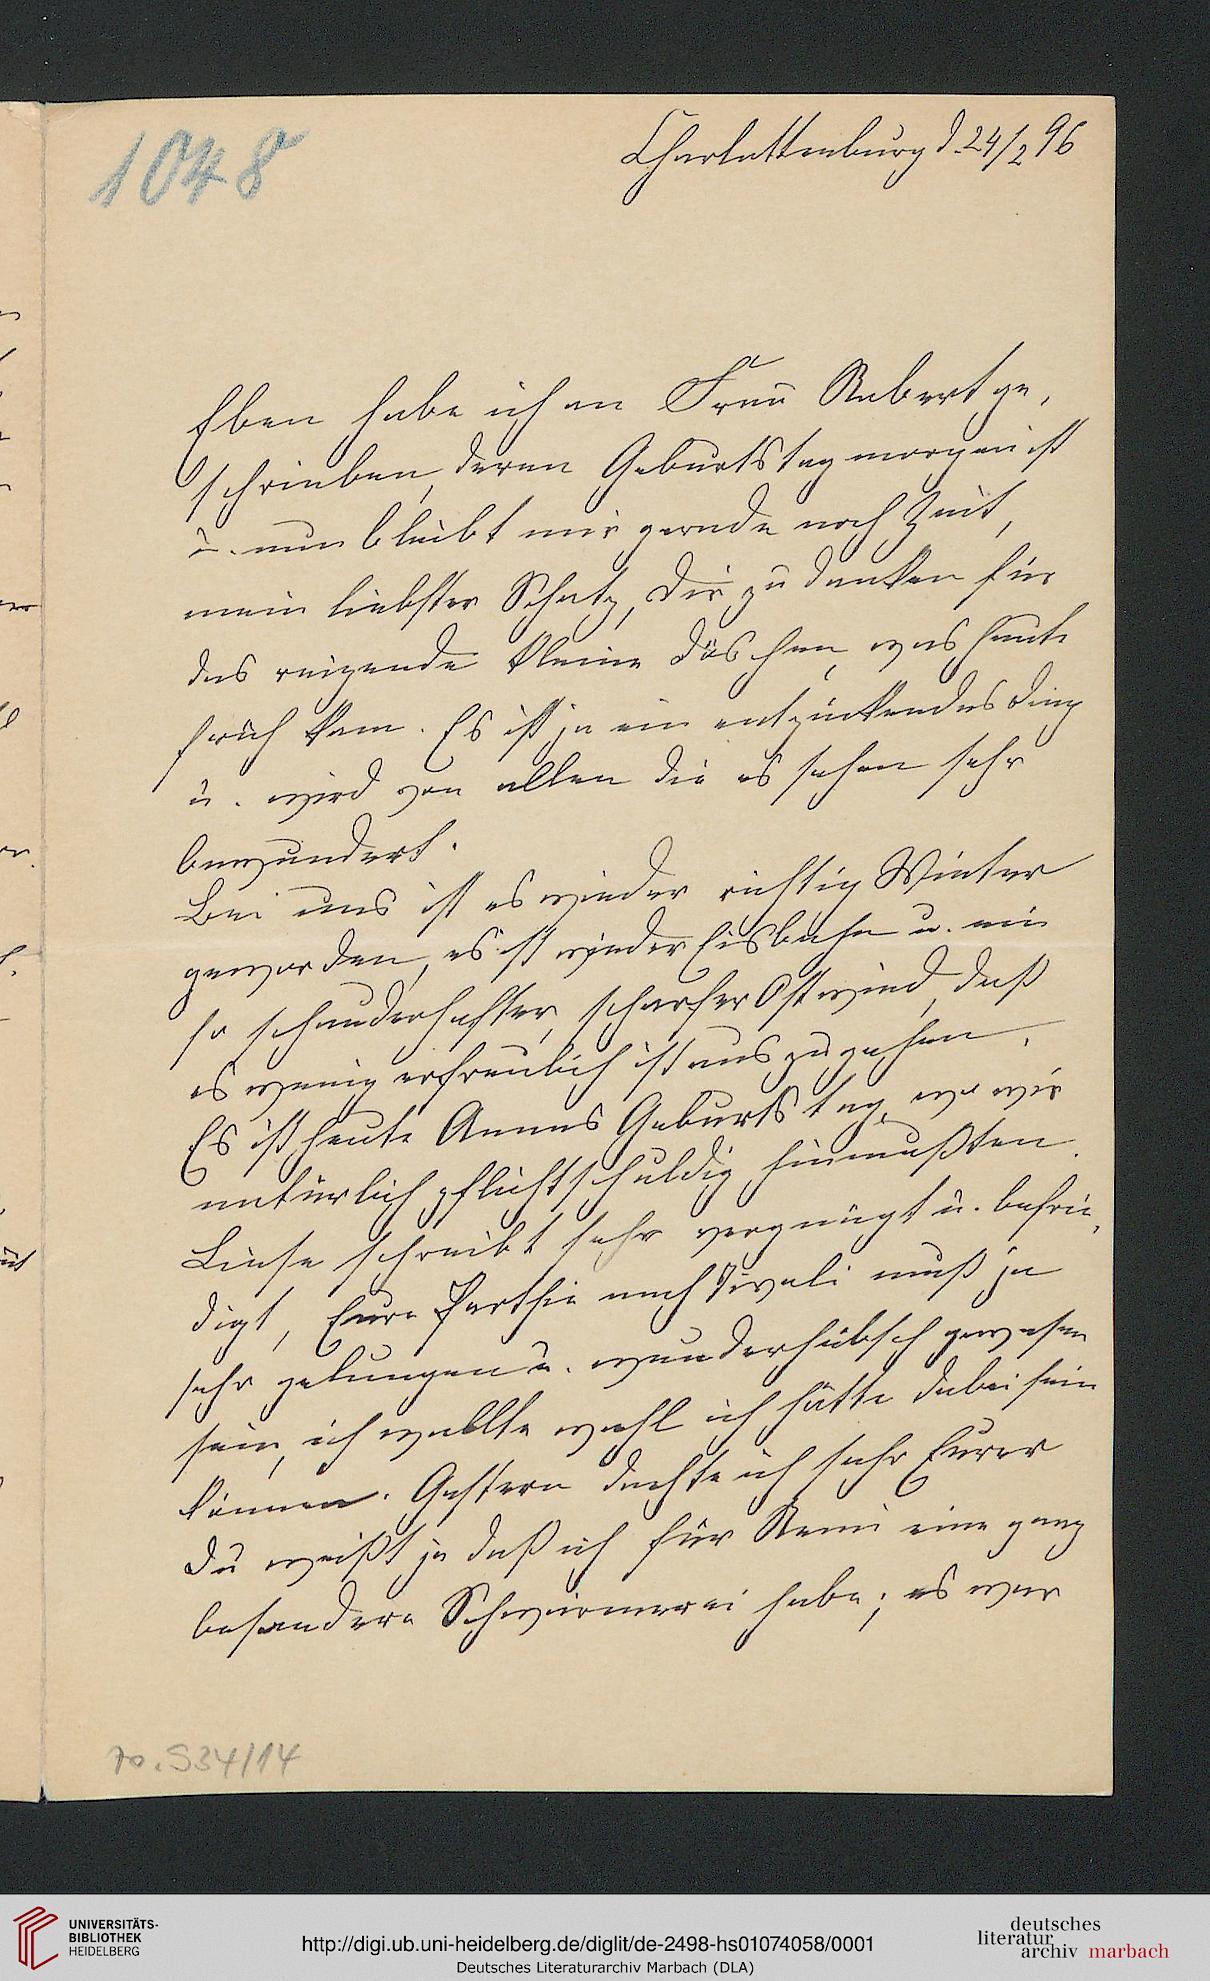 1048
Charlottenburg d. 24/2 96
Eben habe ich an Frau Robert ge,
schrieben, deren Geburtstag morgen ist
u. nun bleibt mir gerade noch Zeit,
mein liebster Schatz, Dir zu danken für
das reizende kleine Döschen, was heute
früh kam. Es ist ja ein entzückendes Ding
u. wird von allen die es sehen sehr
bewundert.
Bei uns ist es wieder richtig Winter
geworden, es ist wieder Eisbahn u. ein
so schauderhafter, scharfer Ostwind, daß
es wenig erfreulich ist auszugehen.
Es ist heute Annas Geburtstag, wo wir
natürlich pflichtschuldig hinmußten.
Liese schreibt sehr vergnügt u. befrie,
digt, Eure Parthie nach Tivoli muß ja
sehr gelungen u. wunderhübsch gewesen
sein, ich wollte wohl ich hätte dabei sein
können. Gestern dachte ich sehr Eurer
Du weißt ja daß ich für Nemi eine ganz
besondere Schwärmerei habe; es war
70.534/14
UNIVERSITÄTS-
BIBLIOTHEK
HEIDELBERG
http://digi.ub.uni-heidelberg.de/diglit/de-2498-hs01074058/0001
Deutsches Literaturarchiv Marbach (DLA)
deutsches
literatur
archiv marbach